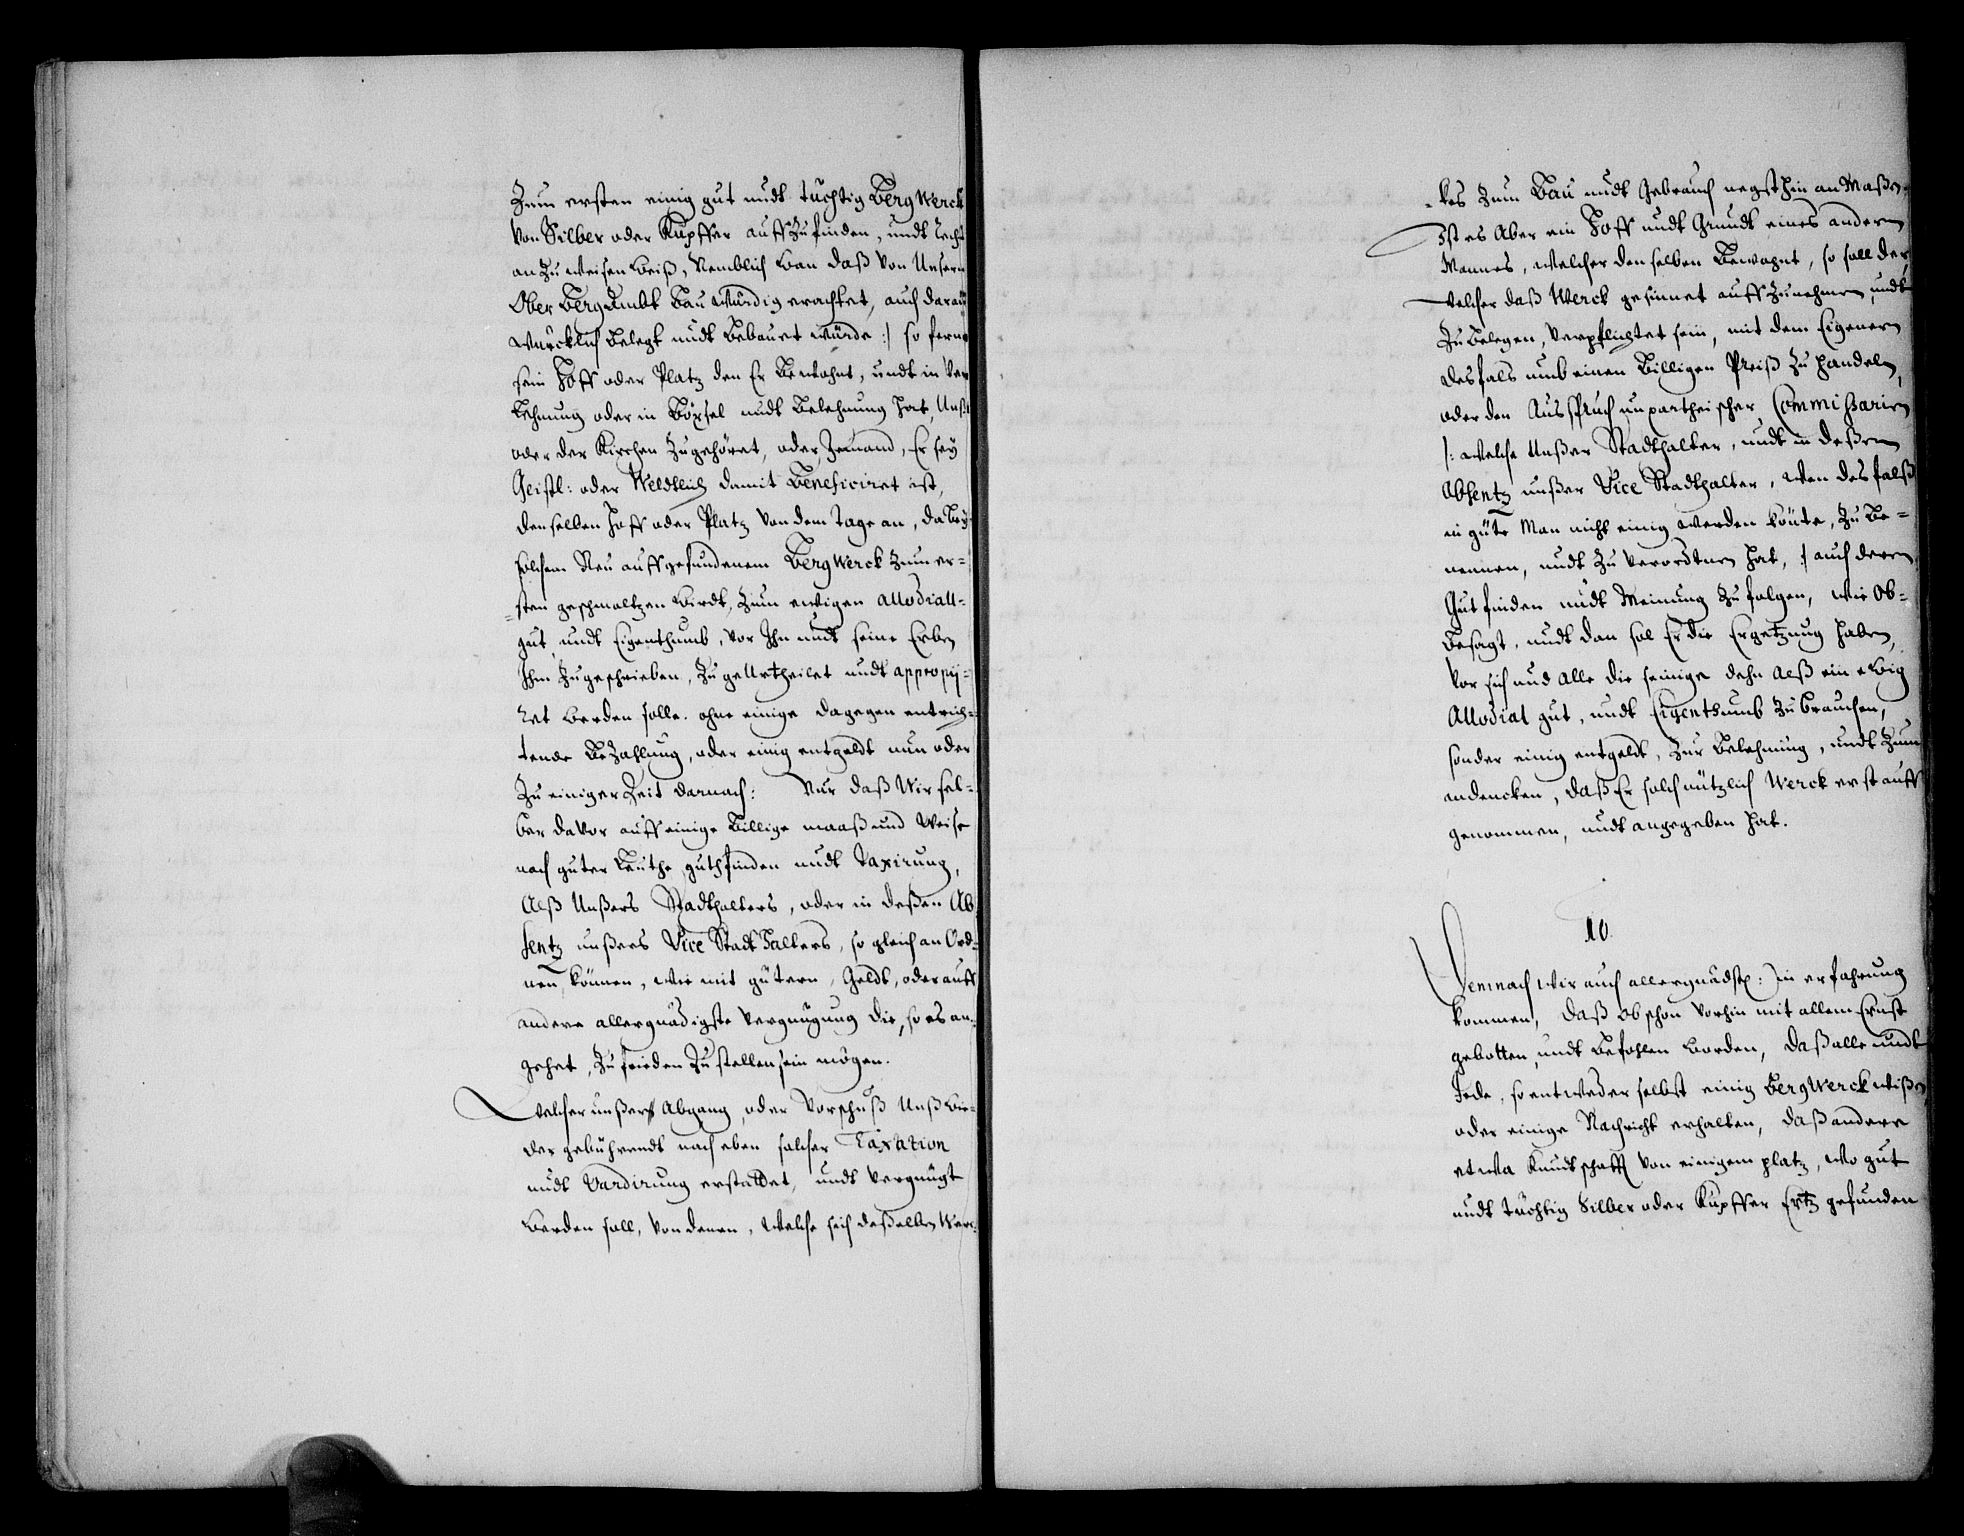 Zum ersten einig gut undt tüchtig Berg Werck
von Silber oder Kupffer auffzufinden, undt recht
anzuweisen weiß, Nemblich wan daß von Unserm
Ober Bergambt Bauwürdig erachtet, auch darauff
würcklich belegt undt bebauet würde :/ so ferne
sein Hoff oder Platz den Er bewohnt, undt in Ver
Lehnung oder in Böxsel undt Belehnung hat, Unß
oder der Kirchen zugehöret, oder Jemand, Er sey
Geistl: oder Weldtlich damit Beneficiret ist,
denselben Hoff oder Platz von dem Tage an, da bey
solchem Neu auffgefundenem Berg Werck zum er-
sten geschmoltzen wirdt, zum ewigen Allodiall-
gut, undt Eigenthumb, vor Ihn undt seine Erben
Ihm zugeschrieben, zugeUrtheilet undt appropij-
ret werden solle. ohne einige dagegen entrich-
tende Bezahlung, oder einig entgeldt nun oder
zu einiger Zeit darnach: Nur daß Wir sel-
ber davor auff einige Billige maaß und Weise
nach guter Leuthe guthfinden undt Taxirung,
Alß Unßers Stadthalters, oder in deßen Ab
sentz unßers Vice Stadthalters, so gleich an Ord-
nen können, wie mit gütern, Geldt, oder auff
andere allergnädigste vergnügung die, so es an-
gehet, zu frieden zu stellen sein mögen.
Welcher unßers Abgang oder Vorschuß Unß wie-
der gebührendt nach eben solcher Taxation
undt Vardirung erstattet, undt vergnügt
werden soll, von denen, welche sich deßelben Werc-
-kes zum Bau undt Gebrauch negsthin an Maßen.
Ist es Aber ein Hoff undt Grundt eines andern
Mannes, welcher denselben Bewohnt, so soll der,
welcher daß Werck gesinnet auffzunehmen undt
zu belegen, verpflichtet sein, mit dem Eigenern
desfals umb einen Billigen Preiß zu handeln,
oder den Ausspruch unpartheischer Commissarien
/: welche Unßer Stadthalter, undt in deßen
Absentz unßer Vice Stadthalter, wen desfalß
in güte Man nicht einig werden könte, zu Be-
nennen, undt zu verordtnen hat, :/ auch deren
Gutfinden undt Meinung zu folgen, wie Ob-
besagt, undt dan sol Er die Ergetzung haben,
vor sich und Alle die seinige dehn alß ein ewig
Allodial gut, undt Eigenthumb zu brauchen,
sonder einig entgeldt, zur Belehnung, undt zum
andencken, daß Er solch nützlich Werck erst auff
genommen, undt angegeben hat.
10.
Demnach wir auch allergnädst: in erfahrung
kommen, daß ob schon vorhin mit allem Ernst
gebotten, undt befohlen worden, daß alle undt
Jede, so entweder selbst einig BergWerck wißen
oder einige Nachricht erhalten, daß andere
etwa Kundtschafft von einigem platz, wo gut
undt tüchtig Silber oder Kupffer Ertz gefunden